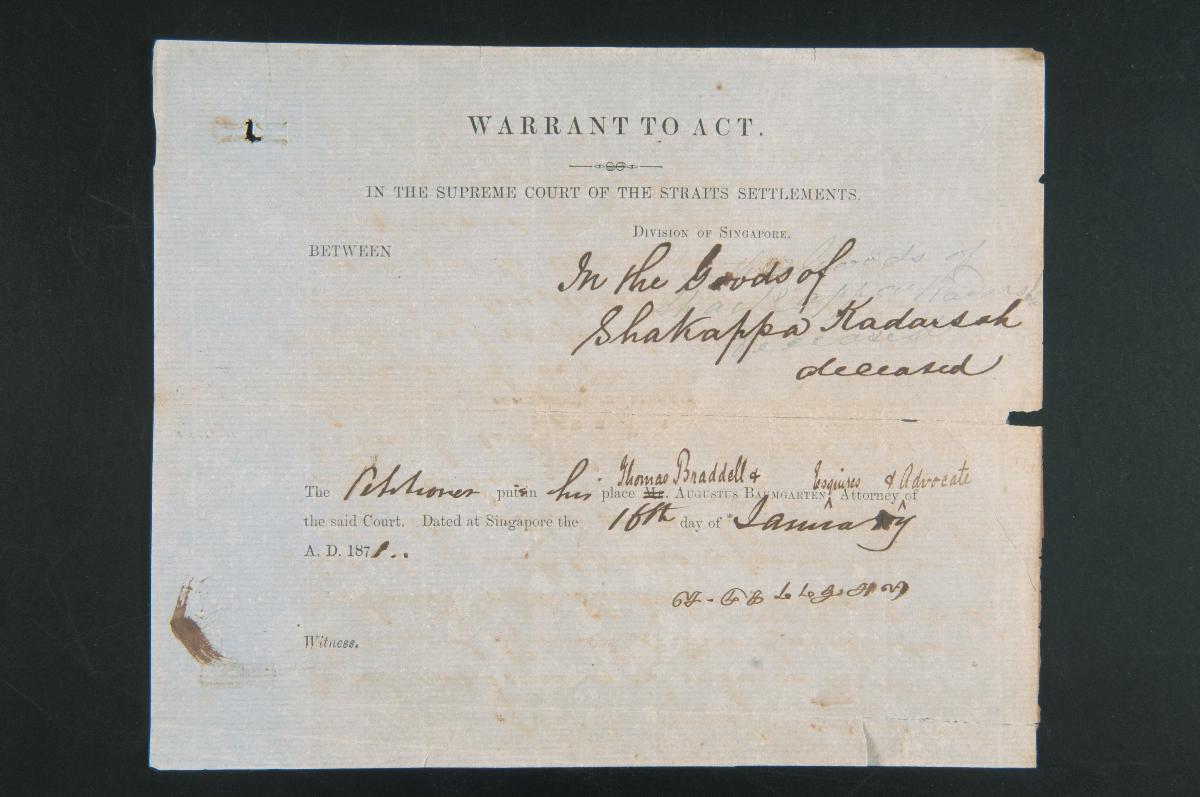 WARRANT TO ACT.
IN THE SUPREME COURT OF THE STRAITS SETTLEMENTS.
DIVISION OF SINGAPORE.
BETWEEN
In the Goods of
Shakappa Kadarsah
deceased
Thomas Braddell & Esquires & Advocate
The Petitioner puts in his place Mr. AUGUSTUS BAUMGARTEN, Attorney of
the said Court. Dated at Singapore the 16th day of January
A. D. 1871..
Witness.